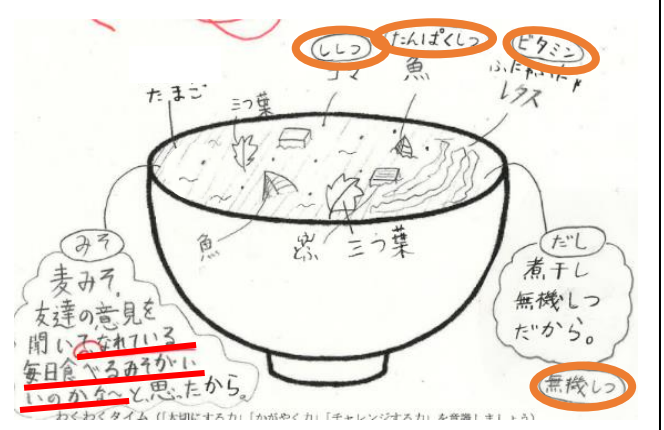 ししつ
たんぱくしつ
ビタミン
ゴマ
魚
レタス
たまご
三つ葉
魚
三つ葉
みそ
麦みそ。
友達の意見を
聞いて、なれている
毎日食べるみそがい
いのかな〜と思ったから。
だし
煮干し
無機しつ
だから。
無機しつ
わくわくタイム(「大切にする力」「かがやく力」「チャレンジする力」を意識しましょう)